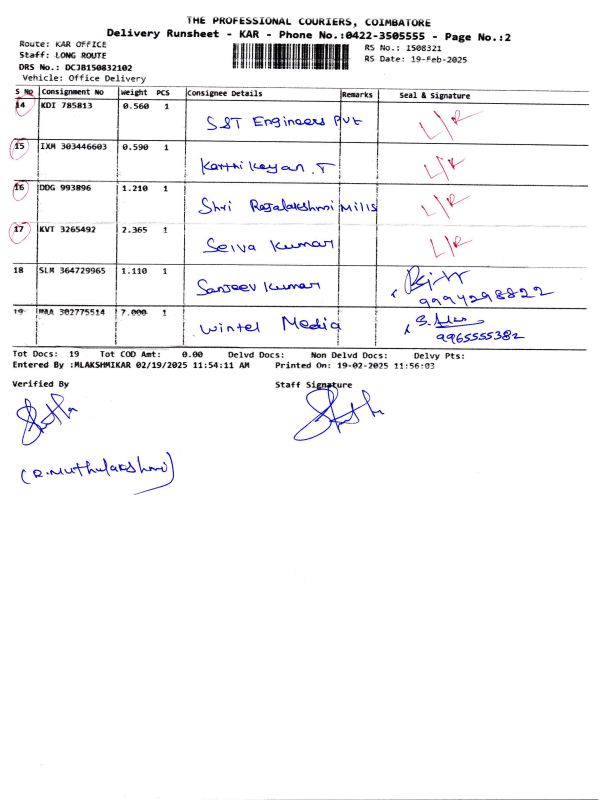 THE PROFESSIONAL COURIERS, COIMBATORE
Delivery Runsheet - KAR - Phone No.:0422-3505555 - Page No.:2
Route: KAR OFFICE
RS No.: 1508321
Staff: LONG ROUTE
RS Date: 19-Feb-2025
DRS No.: DCJB150832102
Vehicle: Office Delivery
S NO Consignment No Weight PCS Consignee Details Remarks Seal & Signature
14 KDI 785813 0.560 1 SST Engineers Pvt L/R
15 IXM 303446603 0.590 1 Karthikeyan.T L/R
16 DDG 993896 1.210 1 Shri Rajalakshmi Mills L/R
17 KVT 3265492 2.365 1 Selva Kumar L/R
18 SLM 364729965 1.110 1 Sanjeev Kumar 9994298822
19 MAA 302775514 7.000 1 Wintel Media 9965555382
Tot Docs: 19 Tot COD Amt: 0.00 Delvd Docs: Non Delvd Docs: Delvy Pts:
Entered By :MLAKSHMIKAR 02/19/2025 11:54:11 AM Printed On: 19-02-2025 11:56:03
Verified By Staff Signature
(R.Muthulakshmi)